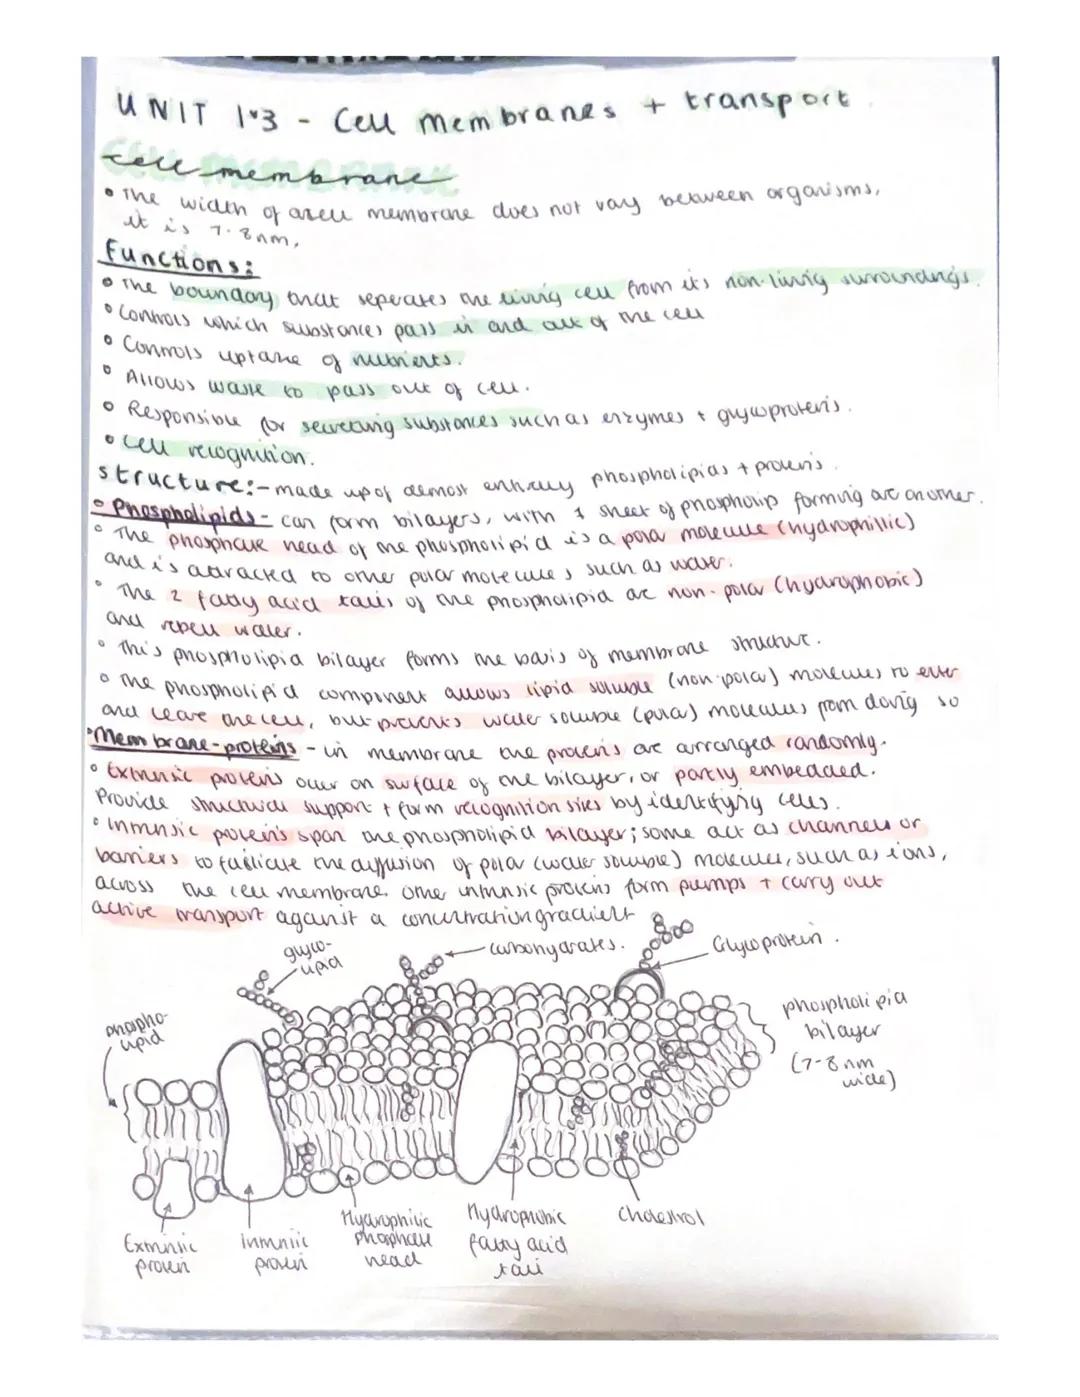 UNIT 1.3 - Cell membranes + transport.
cell membrane
• The width of a cell membrane does not vary between organisms,
it is 7-8nm,
Functions:
• The boundary that seperates the living cell from its non-living surroundings.
• Controls which substances pass in and out of the cell
• Controls uptake of nutrients.
• Allows waste to pass out of cell.
• Responsible for secreting substances such as enzymes + glycoproteins.
• Cell recognition.
structure:- made up of almost entirely phospholipids + proteins.
• Phospholipids - can form bilayers, with 1 sheet of phospholip forming over another.
• The phosphate head of the phospholipid is a polar molecule (hydrophillic)
and is attracted to other polar molecules such as water.
• The 2 fatty acid tails of the phospholipid are non-polar (hydrophobic)
and repell water.
• This phospholipid bilayer forms the basis of membrane structure.
• The phospholipid component allows lipid soluble (non-polar) molecules to enter
and leave the cell, but prevents water soluble (polar) molecules from doing so
• Membrane-proteins - in membrane the proteins are arranged randomly.
• Extrinsic proteins occur on surface of the bilayer, or partly embedded.
Provide structural support + form recognition sites by identifying cells.
• Intrinsic proteins span the phospholipid bilayer; some act as channels or
barriers to faciliate the diffusion of polar (water soluble) molecules, such as ions,
across the cell membrane. Other intrinsic proteins form pumps + carry out
active transport against a concentration gradient
glyco-
lipid
carbohydrates.
Glycoprotein.
phospho-
lipid
phospholipid
bilayer
(7-8nm
wide)
Extrinsic
protein
Intrinsic
protein
Hydrophilic
phosphate
head
Hydrophobic
fatty acid
tail
cholestrol